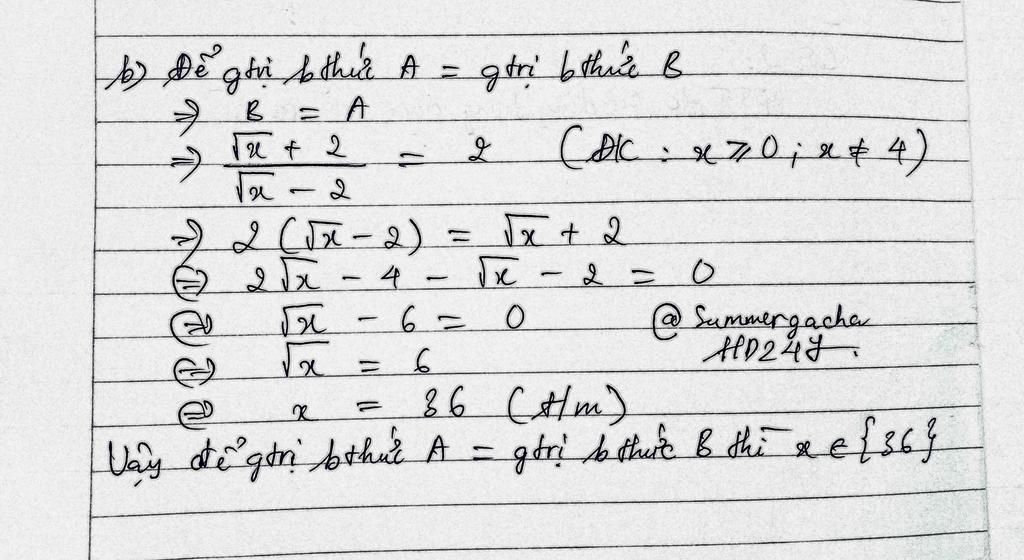 b) Để gtrị bthức A = gtrị bthức B
=> B = A
=> (√x + 2)/(√x - 2) = 2 (ĐK : x ⩾ 0 ; x ≠ 4)
=> 2 (√x - 2) = √x + 2
<=> 2√x - 4 - √x - 2 = 0
<=> √x - 6 = 0
@Summergacha
<=> √x = 6
HD24Y.
<=> x = 36 (t/m)
Vậy để gtrị bthức A = gtrị bthức B thì x ∈ {36}